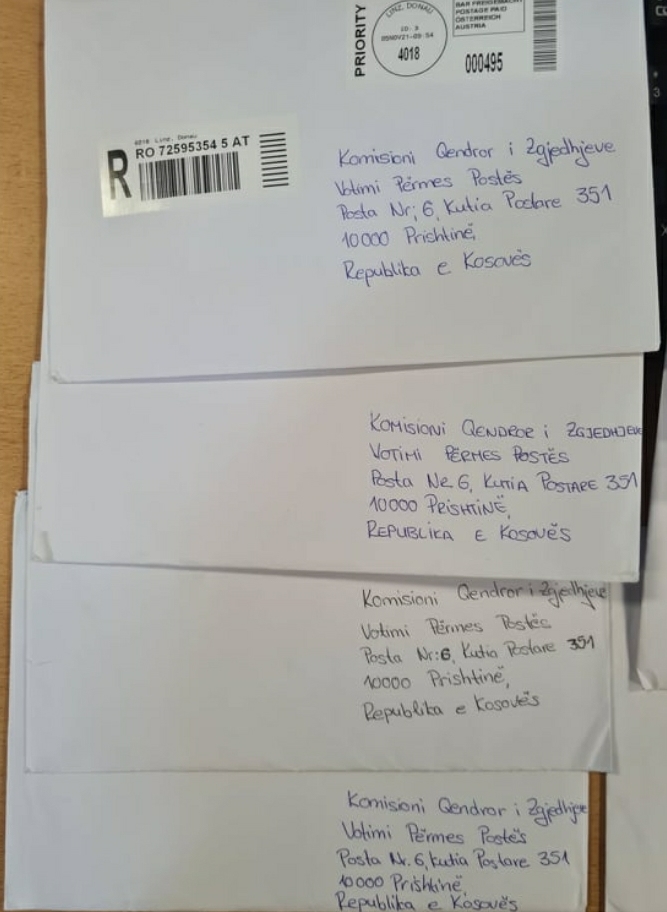 PRIORITY
LINZ, DONAU
05NOV21-09:54
4018
BAR FREIGEMACHT
POSTAGE PAID
ÖSTERREICH
AUSTRIA
000495
4018 Linz, Donau
R
RO 72595354 5 AT
Komisioni Qendror i Zgjedhjeve
Votimi Përmes Postës
Posta Nr; 6, Kutia Postare 351
10000 Prishtinë,
Republika e Kosovës
KOMISIONI QENDROR i ZGJEDHJEVE
VOTIMI PËRMES POSTËS
Posta Nr 6, KUTIA POSTARE 351
10000 PRISHTINË,
REPUBLIKA E KOSOVËS
Komisioni Qendror i Zgjedhjeve
Votimi Përmes Postës
Posta Nr:6, Kutia Postare 351
10000 Prishtinë,
Republika e Kosovës
Komisioni Qendror i Zgjedhjeve
Votimi Përmes Postës
Posta Nr. 6, Kutia Postare 351
10000 Prishtinë,
Republika e Kosovës